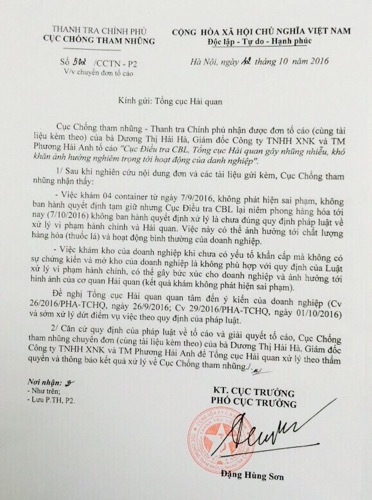 THANH TRA CHÍNH PHỦ
CỤC CHỐNG THAM NHŨNG
CỘNG HÒA XÃ HỘI CHỦ NGHĨA VIỆT NAM
Độc lập - Tự do - Hạnh phúc
Số /CCTN - P2
V/v chuyển đơn tố cáo
Hà Nội, ngày 12 tháng 10 năm 2016
Kính gửi: Tổng cục Hải quan
Cục Chống tham nhũng - Thanh tra Chính phủ nhận được đơn tố cáo (cùng tài
liệu kèm theo) của bà Dương Thị Hải Hà, Giám đốc Công ty TNHH XNK và TM
Phương Hải Anh tố cáo "Cục Điều tra CBL, Tổng cục Hải quan gây nhũng nhiễu, khó
khăn ảnh hưởng nghiêm trọng tới hoạt động của doanh nghiệp".
1/ Sau khi nghiên cứu nội dung đơn và các tài liệu gửi kèm, Cục Chống tham
nhũng nhận thấy:
- Việc khám 04 container từ ngày 7/9/2016, không phát hiện sai phạm, không
ban hành quyết định tạm giữ nhưng Cục Điều tra CBL lại niêm phong hàng hóa tới
nay (7/10/2016) không ban hành quyết định xử lý là chưa đúng quy định pháp luật về
xử lý vi phạm hành chính và Hải quan. Việc này có thể ảnh hưởng tới chất lượng
hàng hóa (thuốc lá) và hoạt động bình thường của doanh nghiệp.
- Việc khám kho của doanh nghiệp khi chưa có yếu tố khẩn cấp mà không có
sự chứng kiến và mở kho của doanh nghiệp là không phù hợp với quy định của Luật
xử lý vi phạm hành chính, có thể gây bức xúc cho doanh nghiệp và ảnh hưởng tới
hình ảnh của cơ quan Hải quan (kết quả khám không phát hiện sai phạm).
Đề nghị Tổng cục Hải quan quan tâm đến ý kiến của doanh nghiệp (Cv
26/2016/PHA-TCHQ, ngày 26/9/2016; Cv 29/2016/PHA-TCHQ, ngày 01/10/2016)
và sớm xử lý dứt điểm vụ việc theo quy định của pháp luật.
2/ Căn cứ quy định của pháp luật về tố cáo và giải quyết tố cáo, Cục Chống
tham nhũng chuyển đơn (cùng tài liệu kèm theo) của bà Dương Thị Hải Hà, Giám đốc
Công ty TNHH XNK và TM Phương Hải Anh để Tổng cục Hải quan xử lý theo thẩm
quyền và thông báo kết quả xử lý về Cục Chống tham nhũng./.
Nơi nhận:
- Như trên;
- Lưu P.TH, P2.
KT. CỤC TRƯỞNG
PHÓ CỤC TRƯỞNG
Đặng Hùng Sơn